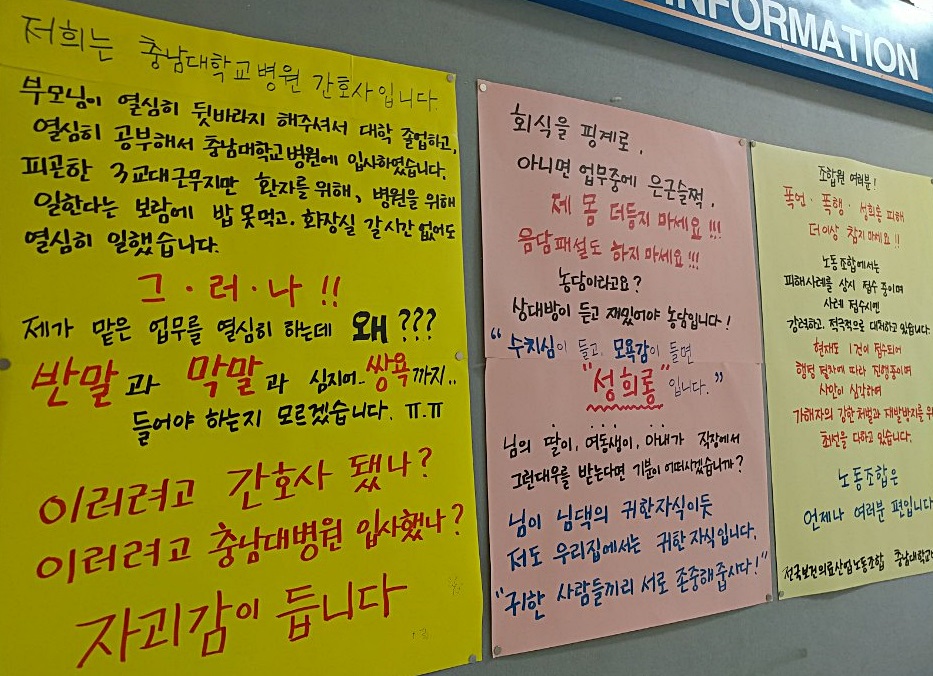 INFORMATION
저희는 충남대학교병원 간호사입니다.
부모님이 열심히 뒷바라지 해주셔서 대학 졸업하고,
열심히 공부해서 충남대학교병원에 입사하였습니다.
피곤한 3교대근무지만 환자를 위해, 병원을 위해
일한다는 보람에 밥 못먹고, 화장실 갈시간 없어도
열심히 일했습니다.
그·러·나 !!
제가 맡은 업무를 열심히 하는데 왜 ???
반말과 막말과 심지어.. 쌍욕까지..
들어야 하는지 모르겠습니다. ㅠ.ㅠ
이러려고 간호사 됐나?
이러려고 충남대병원 입사했나?
자괴감이 듭니다
회식을 핑계로,
아니면 업무중에 은근슬쩍,
제 몸 더듬지 마세요!!!
음담패설도 하지마세요!!!
농담이라고요?
상대방이 듣고 재밌어야 농담입니다!
“수치심이 들고, 모욕감이 들면
"성희롱"입니다.”
님의 딸이, 여동생이, 아내가 직장에서
그런대우를 받는다면 기분이 어떠시겠습니까?
님이 님댁의 귀한자식이듯
저도 우리집에서는 귀한 자식입니다.
"귀한 사람들끼리 서로 존중해줍시다!"
조합원 여러분!
폭언·폭행·성희롱 피해
더이상 참지마세요!!
노동조합에서는
피해사례를 상시 접수중이며
사례 접수시엔
강력하고, 적극적으로 대처하고 있습니다.
현재도 1건이 접수되어
행정 절차에 따라 진행중이며
사안이 심각하여
가해자의 강한처벌과 재발방지를 위
최선을 다하고 있습니다.
노동조합은
언제나 여러분 편입니다
전국보건의료산업노동조합 충남대학교